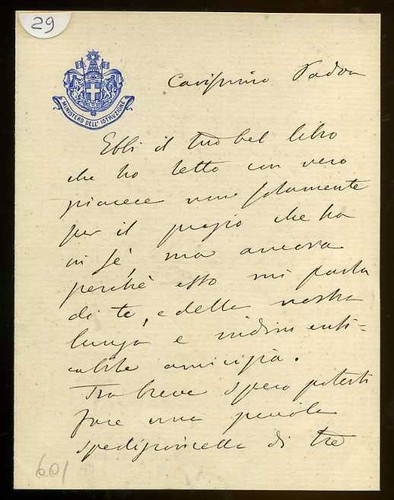 29
MINISTERO DELL'ISTRUZIONE
Carissimo
Ebbi il tuo bel libro
che ho letto con vero
piacere non solamente
per il pregio che ha
in sé, ma ancora
perchè esso mi parla
di te, e della nostra
lunga e indimenti-
cabile amicizia.
Tra breve spero poterti
fare una piccola
spedizioncella di tre
601